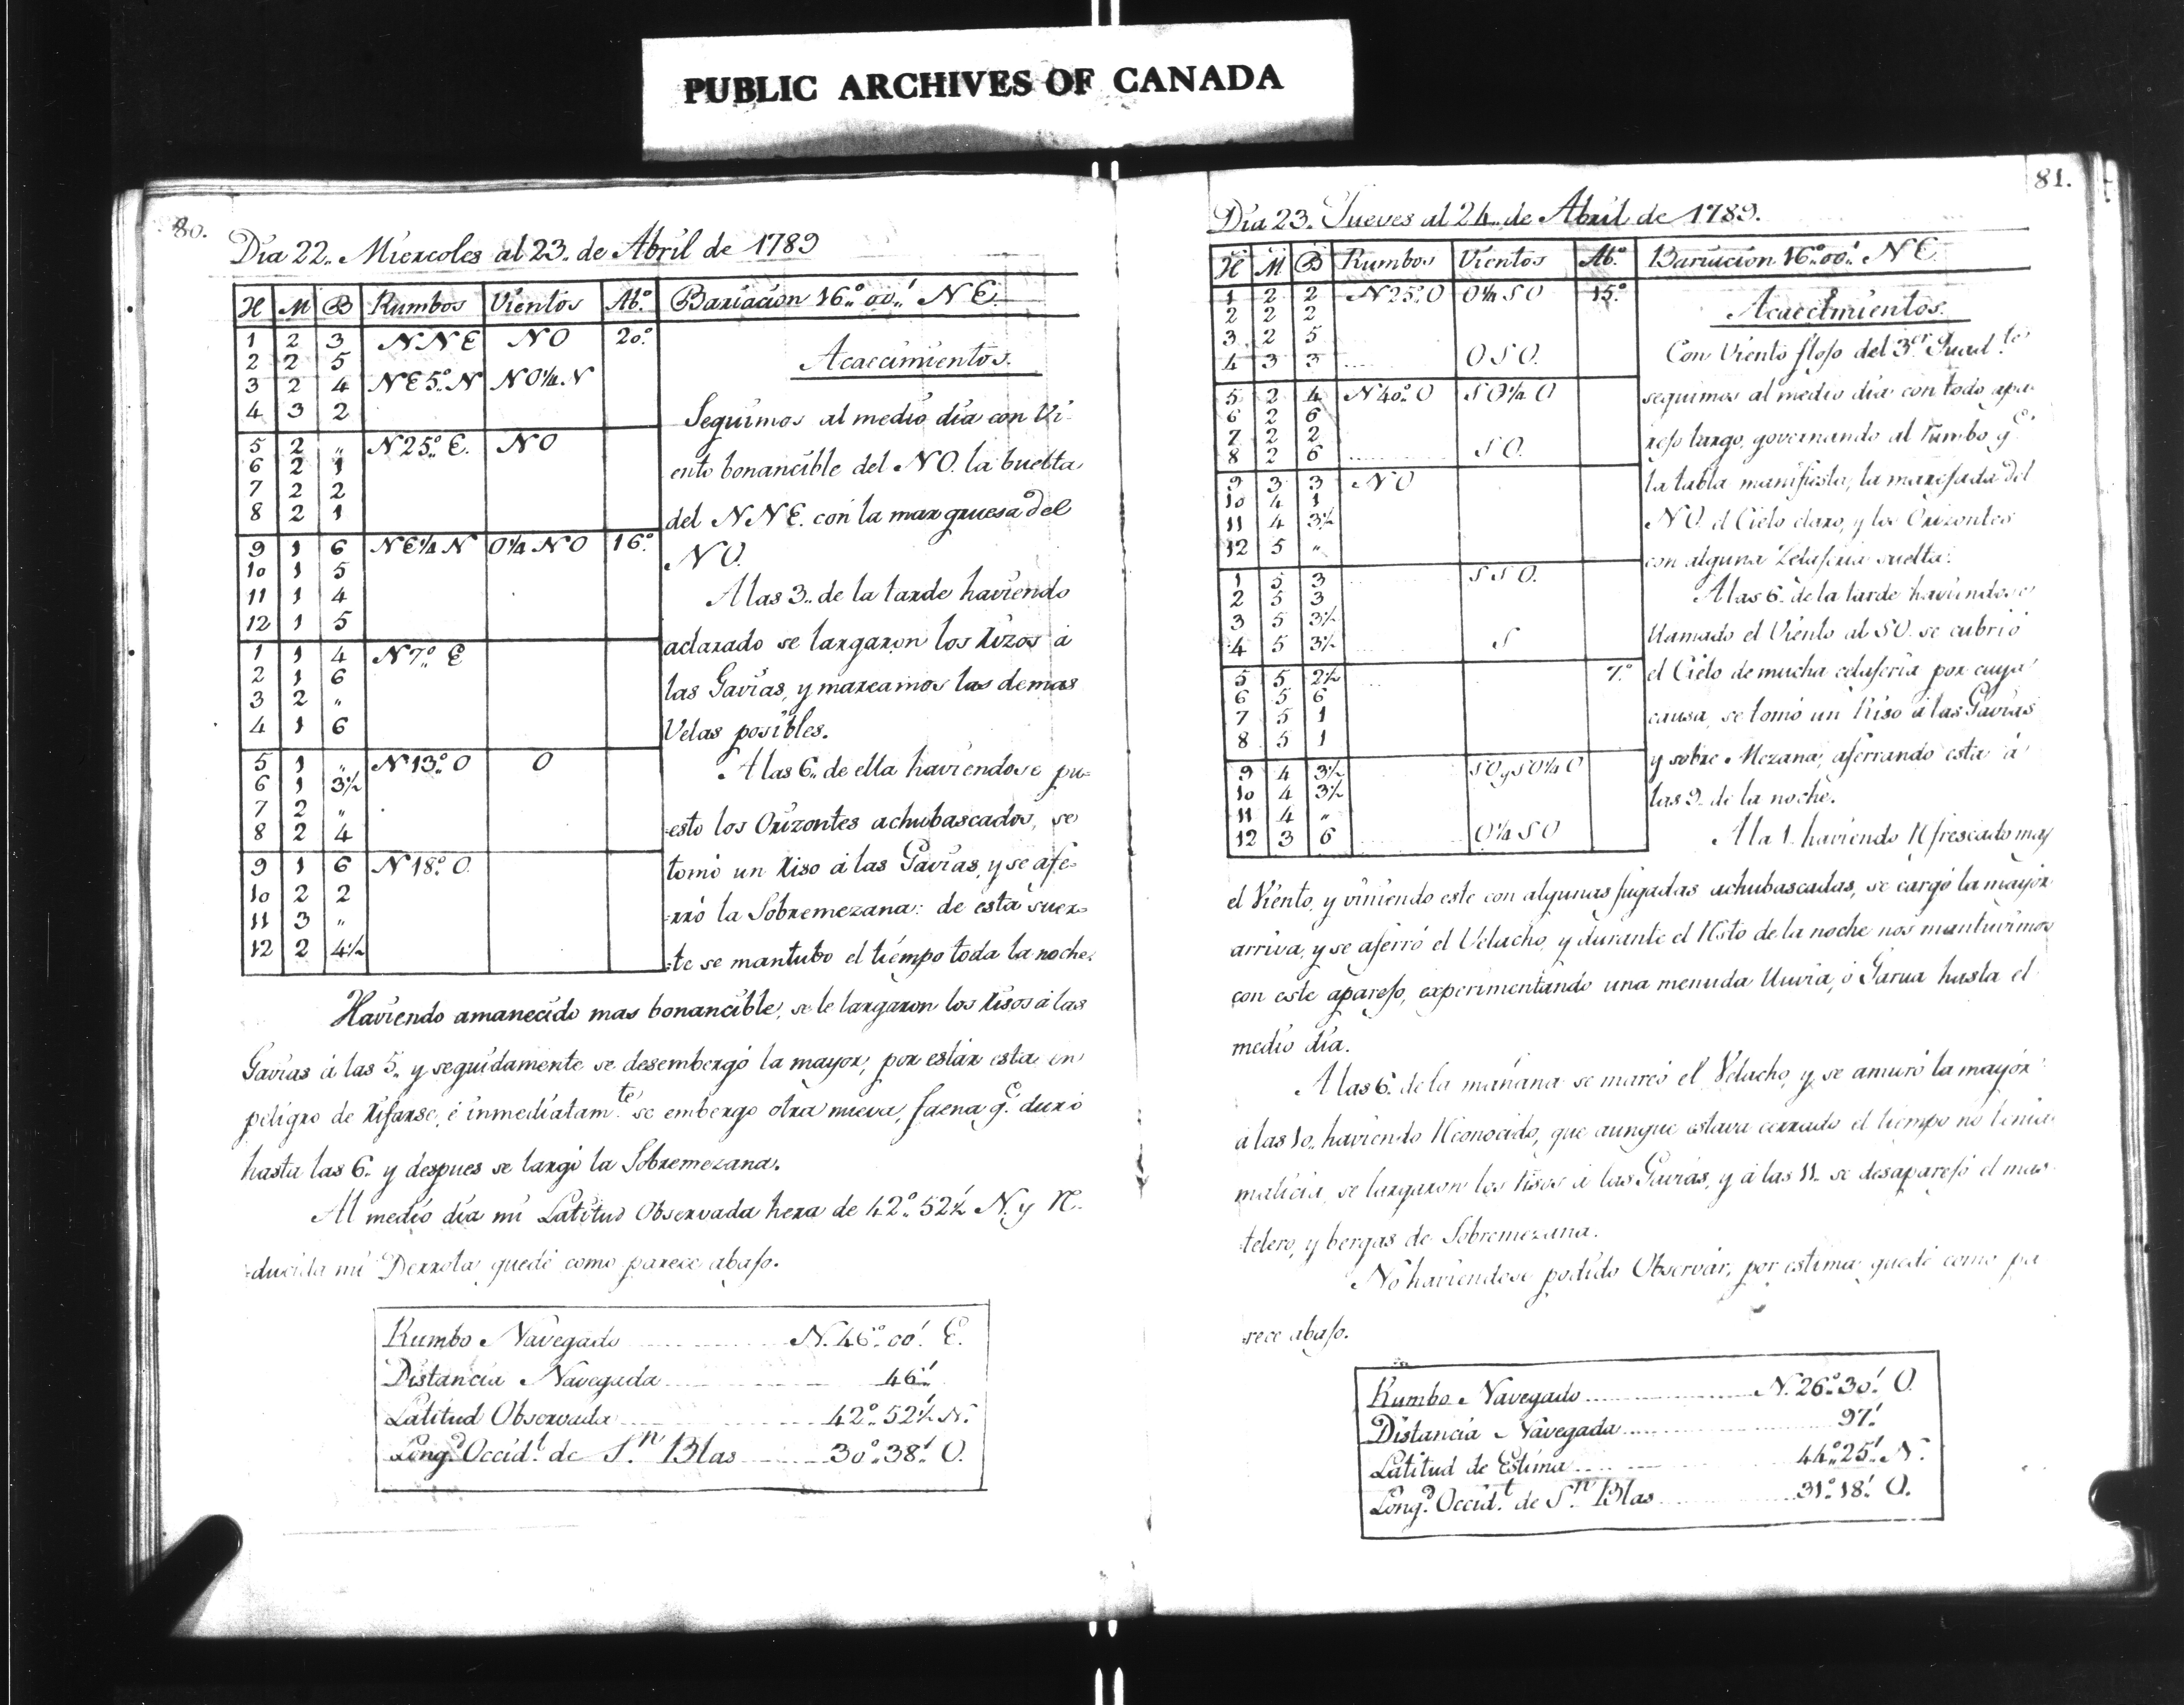 PUBLIC ARCHIVES OF CANADA
80.
Dia 22.. Miercoles al 23.. de Abril de 1789
H M B Rumbos Vientos Ab.º Bariacion 16.º 00.' N E.
1 2 3 N N E N O 20.º
2 2 5
3 2 4 N E 5.º N N O ¼ N
4 3 2
5 2 " N 25.º E. N O
6 2 1
7 2 2
8 2 1
9 1 6 N E ¼ N O ¼ N O 16.º
10 1 5
11 1 4
12 1 5
1 1 4 N 7.º E
2 1 6
3 2 "
4 1 6
5 1 " N 13.º O O
6 1 3½
7 2 "
8 2 4
9 1 6 N 18.º O.
10 2 2
11 3 "
12 2 4½
Acaecimientos.
Seguimos al medio dia con Vi-
ento bonancible del N O. la buelta
del N N E. con la mar gruesa del
N O.
A las 3.. de la tarde haviendo
aclarado se largaron los Rizos á
las Gavias, y mareamos las demas
Velas posibles.
A las 6.. de ella haviendose pu-
esto los Orizontes achubascados, se
tomó un Riso á las Gavias, y se afe-
rró la Sobremezana: de esta suer-
te se mantubo el tiempo toda la noche.
Haviendo amanecido mas bonancible, se le largaron los Risos á las
Gavias á las 5.. y seguidamente se desembergó la mayor, por estár esta en
peligro de Rifarse, é inmediatam.te se embergo otra nueva, faena q.e duró
hasta las 6.. y despues se largó la Sobremezana.
Al medio dia mi Latitud Observada hera de 42.º 52½ N. y Re-
ducida mi Derrota quedé como parece abajo.
Rumbo Navegado N. 46.º 00.' E.
Distancia Navegada 46.'
Latitud Observada 42.º 52½ N.
Long.d Occid.l de S.n Blas 30.º 38.' O.
81.
Dia 23. Jueves al 24.. de Abril de 1789.
H M B Rumbos Vientos Ab.º Bariacion 16.º 00.' N E
1 2 2 N 25.º O O ¼ S O 15.º
2 2 2
3 2 5
4 3 3 O S O.
5 2 4 N 40.º O S O ¼ O
6 2 6
7 2 2
8 2 6 S O.
9 3 3 N O
10 4 1
11 4 3½
12 5 "
1 5 3 S S O.
2 5 3
3 5 3½
4 5 3½ S
5 5 2½ 7.º
6 5 6
7 5 1
8 5 1
9 4 3½ S O y S O ¼ O
10 4 3½
11 4 "
12 3 6 O ¼ S O
Acaecimientos.
Con Viento flojo del 3.er Quad.te
seguimos al medio dia con todo apa-
rejo largo, governando al Rumbo q.e
la tabla manifiesta; la marejada del
N O. el Cielo claro, y los Orizontes
con alguna Zelajeria suelta.
A las 6.. de la tarde haviendose
llamado el Viento al S O. se cubrió
el Cielo de mucha celajeria por cuya
causa, se tomó un Riso á las Gavias
y sobre Mezana, aferrando esta á
las 9.. de la noche.
A la 1. haviendo Refrescado mas
el Viento, y viniendo este con algunas fugadas achubascadas, se cargó la mayor
arriva, y se aferró el Velacho, y durante el Resto de la noche nos mantuvimos
con este aparejo, experimentando una menuda lluvia, ó Garua hasta el
medio dia.
A las 6. de la mañana se mareó el Velacho, y se amuró la mayor
á las 10.. haviendo Reconocido, que aunque estava cerrado el tiempo no tenia
malicia, se largaron los Risos á las Gavias, y á las 11.. se desaparejó el mas-
telero, y bergas de Sobremezana.
No haviendose podido Observár, por estima quedé como pa-
rece abajo.
Rumbo Navegado N. 26.º 30.' O.
Distancia Navegada 97.'
Latitud de Estima 44.º 25.' N.
Long.d Occid.l de S.n Blas 31.º 18.' O.